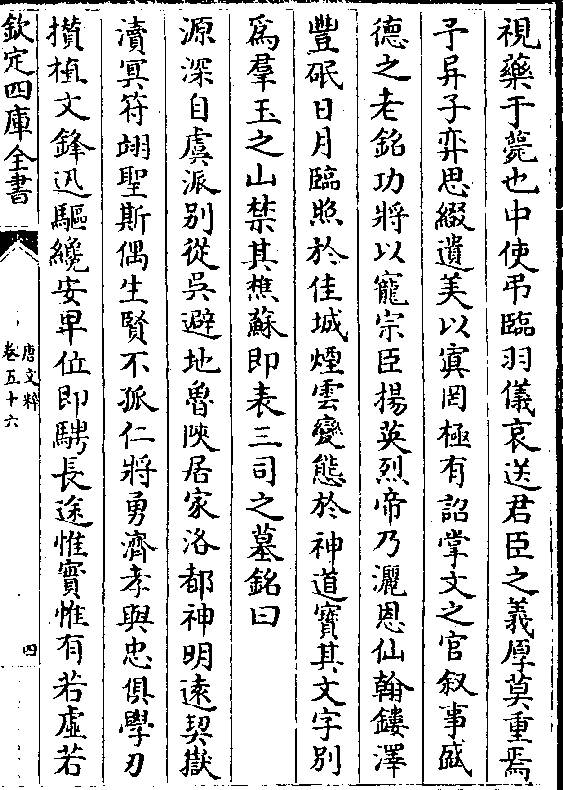 視藥于薨也中使弔臨羽儀哀送君臣之義厚莫重焉
予昇子弈思綴遺美以寘罔極有詔掌文之官叙事盛
德之老銘功將以寵宗臣揚英烈帝乃灑恩仙翰鏤澤
豐砥日月臨照於佳城煙雲變態於神道寳其文字別
爲羣玉之山禁其樵蘇即表三司之墓銘曰
源深自虞派别從吳避地魯陜居家洛都神明逺契嶽
瀆冥符翊聖斯偶生賢不孤仁將勇濟孝與忠俱學刃
攅植文鋒迅驅纔安卑位即騁長途惟實惟有若虛若
欽定四庫全書
唐文粹
卷五十六
四